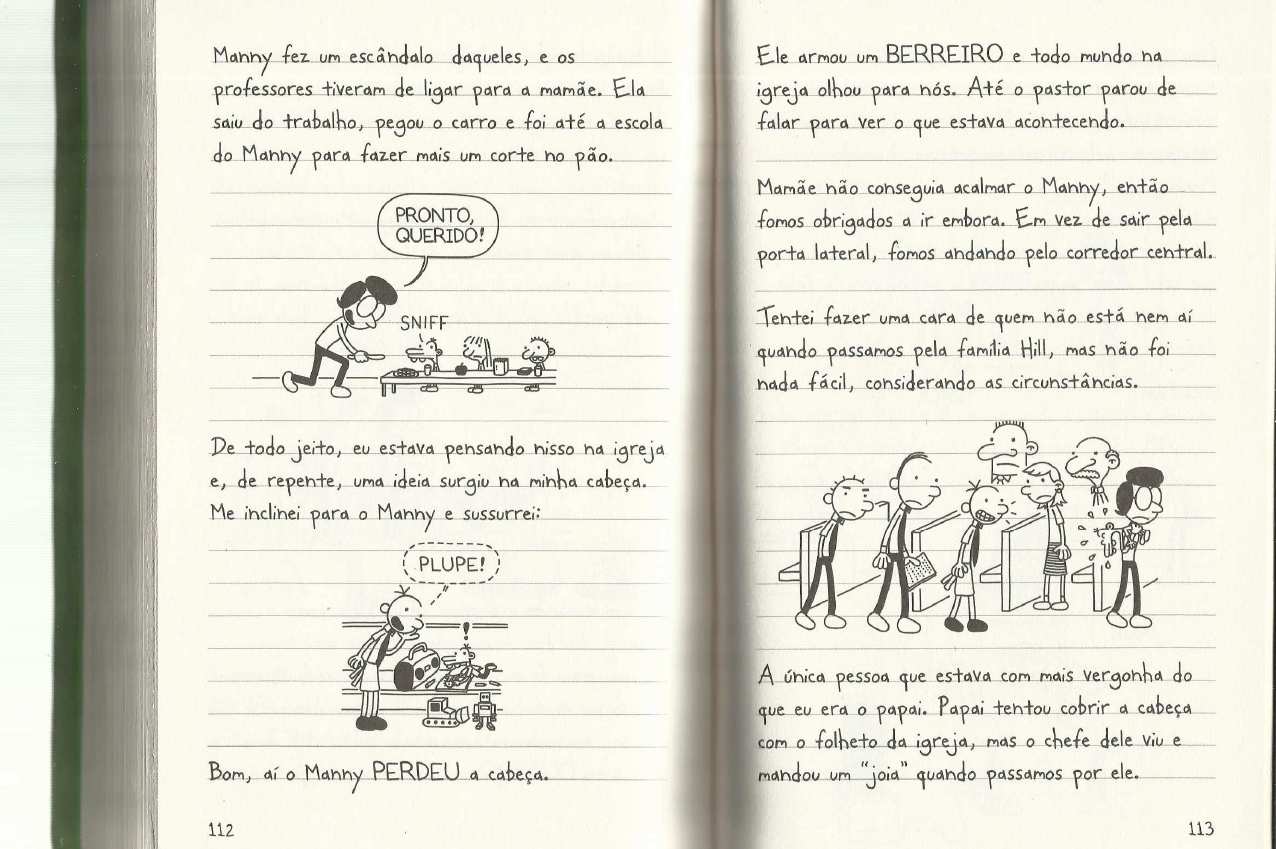 Manny fez um escândalo daqueles, e os
professores tiveram de ligar para a mamãe. Ela
saiu do trabalho, pegou o carro e foi até a escola
do Manny para fazer mais um corte no pão.
PRONTO,
QUERIDO!
SNIFF
De todo jeito, eu estava pensando nisso na igreja
e, de repente, uma ideia surgiu na minha cabeça.
Me inclinei para o Manny e sussurrei:
PLUPE!
!
Bom, aí o Manny PERDEU a cabeça.
112
Ele armou um BERREIRO e todo mundo na
igreja olhou para nós. Até o pastor parou de
falar para ver o que estava acontecendo.
Mamãe não conseguia acalmar o Manny, então
fomos obrigados a ir embora. Em vez de sair pela
porta lateral, fomos andando pelo corredor central.
Tentei fazer uma cara de quem não está nem aí
quando passamos pela família Hill, mas não foi
nada fácil, considerando as circunstâncias.
A única pessoa que estava com mais vergonha do
que eu era o papai. Papai tentou cobrir a cabeça
com o folheto da igreja, mas o chefe dele viu e
mandou um "joia" quando passamos por ele.
113